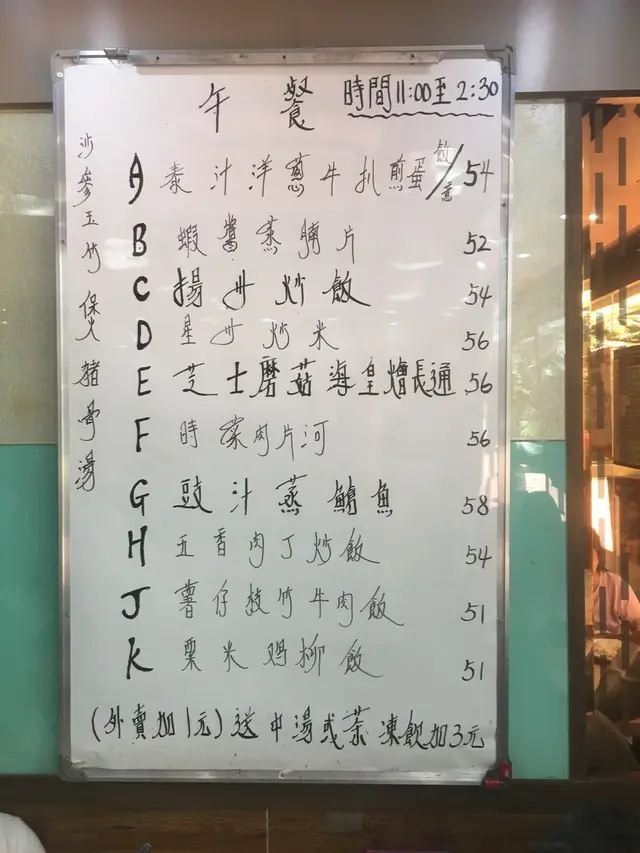 午餐 時間11:00至2:30
沙參玉竹煲豬骨湯
A 泰汁洋蔥牛扒煎蛋飯/意 54
B 蝦醬蒸腩片 52
C 揚州炒飯 54
D 星州炒米 56
E 芝士磨菇海皇燴長通 56
F 時菜肉片河 56
G 豉汁蒸魚 58
H 五香肉丁炒飯 54
J 薯仔枝竹牛肉飯 51
K 粟米鸡柳飯 51
(外賣加1元)送中湯或茶 凍飲加3元